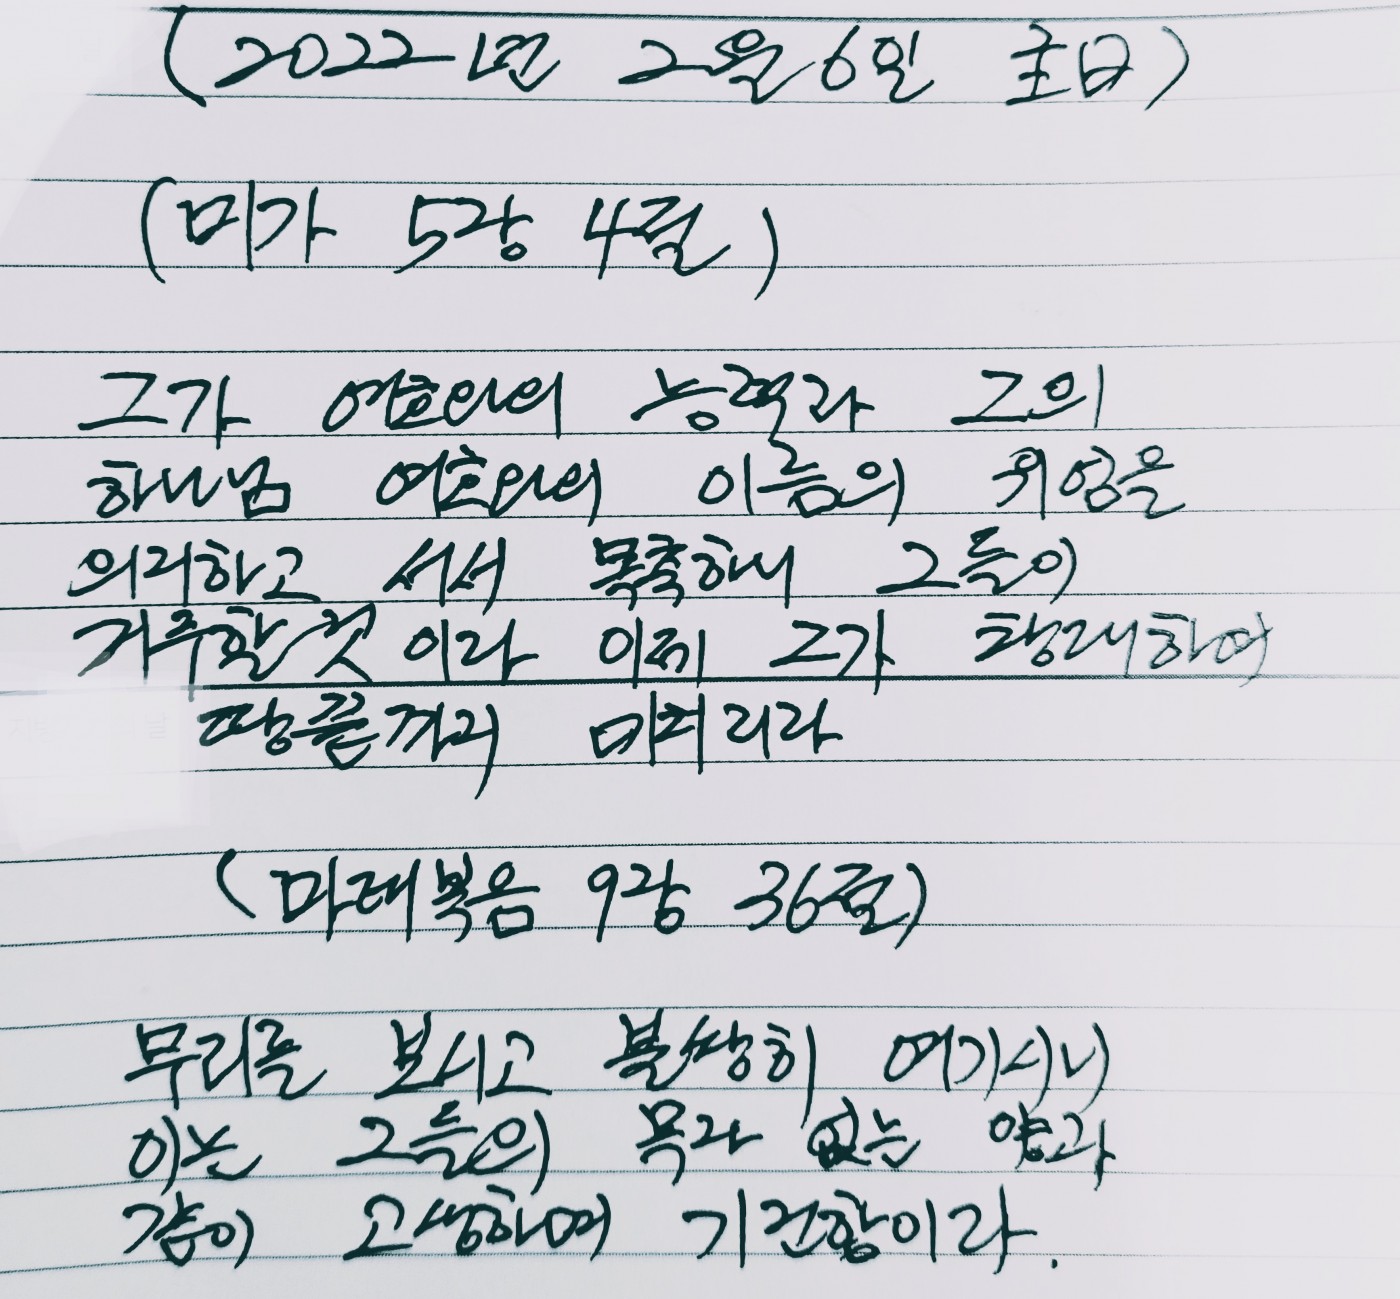 (2022년 2월 6일 主日)
(미가 5장 4절)
그가 여호와의 능력과 그의
하나님 여호와의 이름의 위엄을
의지하고 서서 목축하니 그들이
거주할것 이라 이제 그가 창대하여
땅끝까지 미치리라
(마태복음 9장 36절)
무리를 보시고 불쌍히 여기시니
이는 그들의 목자 없는 양과
같이 고생하며 기진함이라.